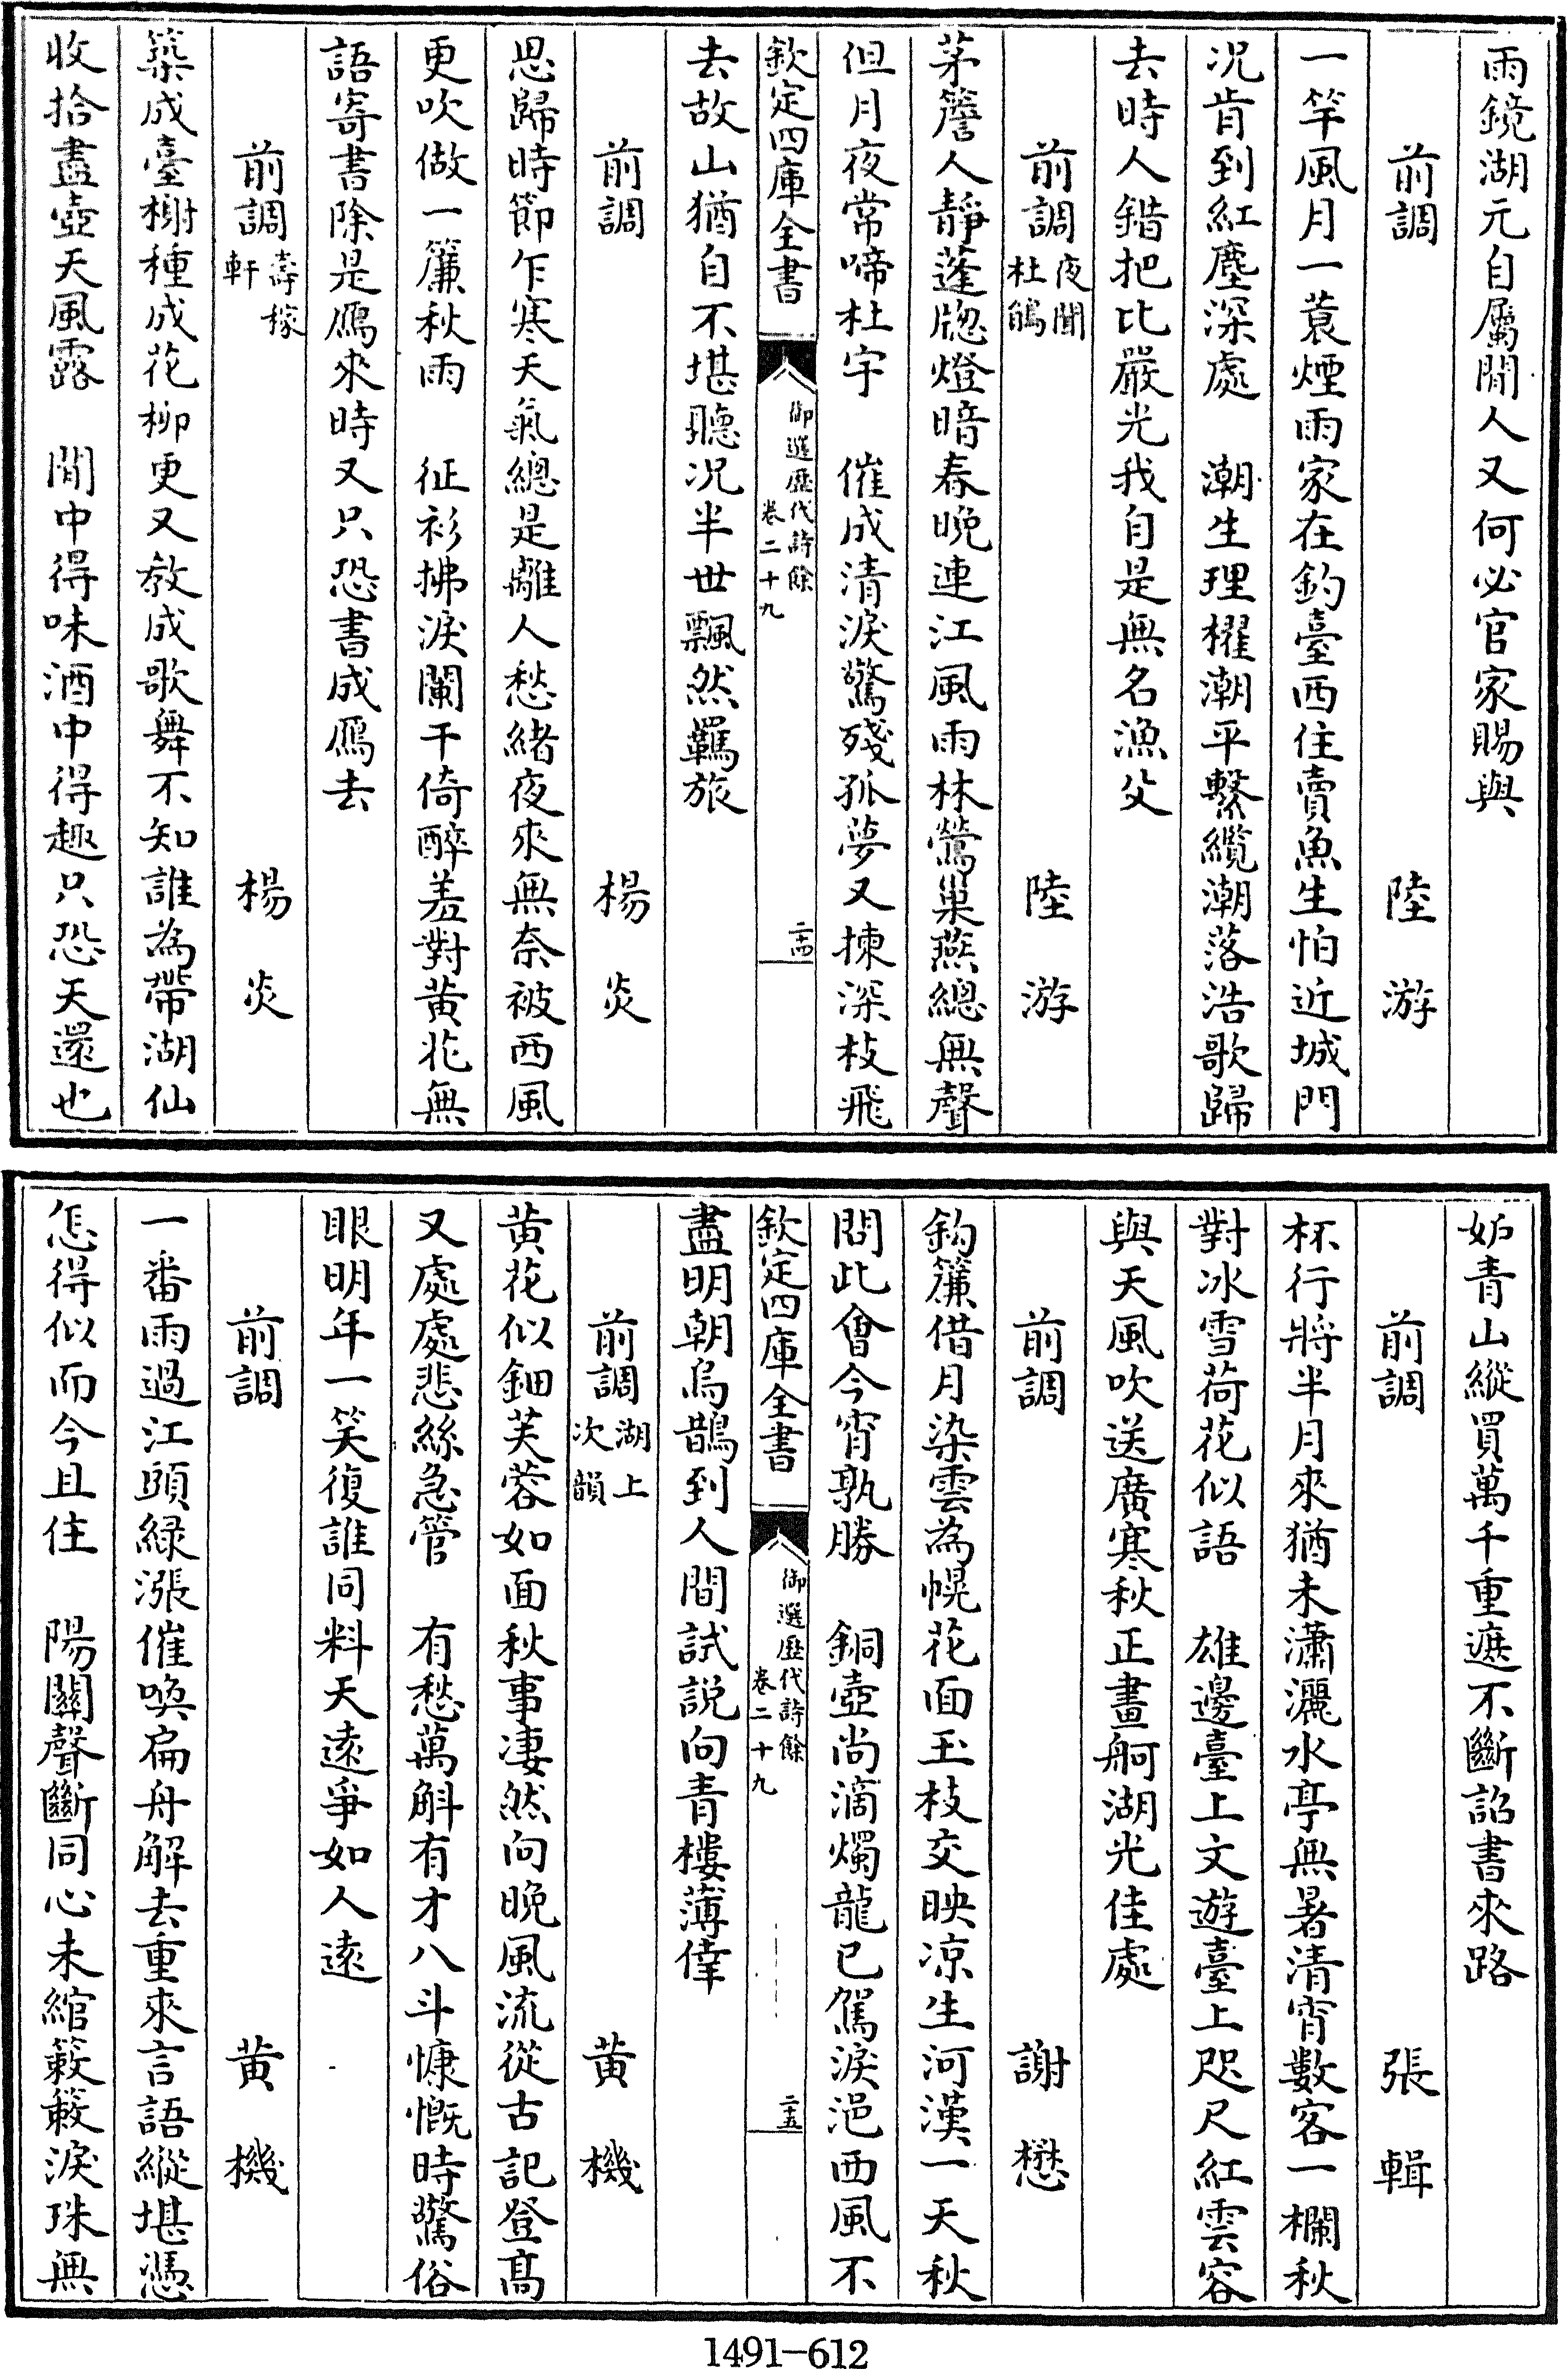 雨鏡湖元自屬閒人又何必官家賜與
前調 陸游
一竿風月一蓑煙雨家在釣臺西住賣魚生怕近城門
况肯到紅塵深處 潮生理櫂潮平繫纜潮落浩歌歸
去時人錯把比嚴光我自是無名漁父
前調夜聞杜鵑 陸游
茅簷人靜蓬牎燈暗春晚連江風雨林鶯巢燕總無聲
但月夜常啼杜宇 催成清淚驚殘孤夢又揀深枝飛
欽定四庫全書 御選歷代詩餘 卷二十九 二十四
去故山猶自不堪聽况半世飄然羈旅
前調 楊炎
思歸時節乍寒天氣總是離人愁緒夜來無奈被西風
更吹做一簾秋雨 征衫拂淚闌干倚醉羞對黃花無
語寄書除是鴈來時又只恐書成鴈去
前調壽稼軒 楊炎
築成臺榭種成花柳更又教成歌舞不知誰為帶湖仙
收拾盡壺天風露 閒中得味酒中得趣只恐天還也
妬青山縱買萬千重遮不斷詔書來路
前調 張輯
杯行將半月來猶未瀟灑水亭無暑清宵數客一欄秋
對冰雪荷花似語 雄邊臺上文遊臺上咫尺紅雲容
與天風吹送廣寒秋正畫舸湖光佳處
前調 謝懋
鈎簾借月染雲為幌花面玉枝交映凉生河漢一天秋
問此會今宵孰勝 銅壺尚滴燭龍已駕淚浥西風不
欽定四庫全書 御選歷代詩餘 卷二十九 二十五
盡明朝烏鵲到人間試說向青樓薄倖
前調湖上次韻 黃機
黃花似鈿芙蓉如面秋事淒然向晚風流從古記登高
又處處悲絲急管 有愁萬斛有才八斗慷慨時驚俗
眼明年一笑復誰同料天遠爭如人遠
前調 黃機
一番雨過江頭綠漲催喚扁舟解去重來言語縱堪憑
怎得似而今且住 陽關聲斷同心未綰簌簌淚珠無
1491—612